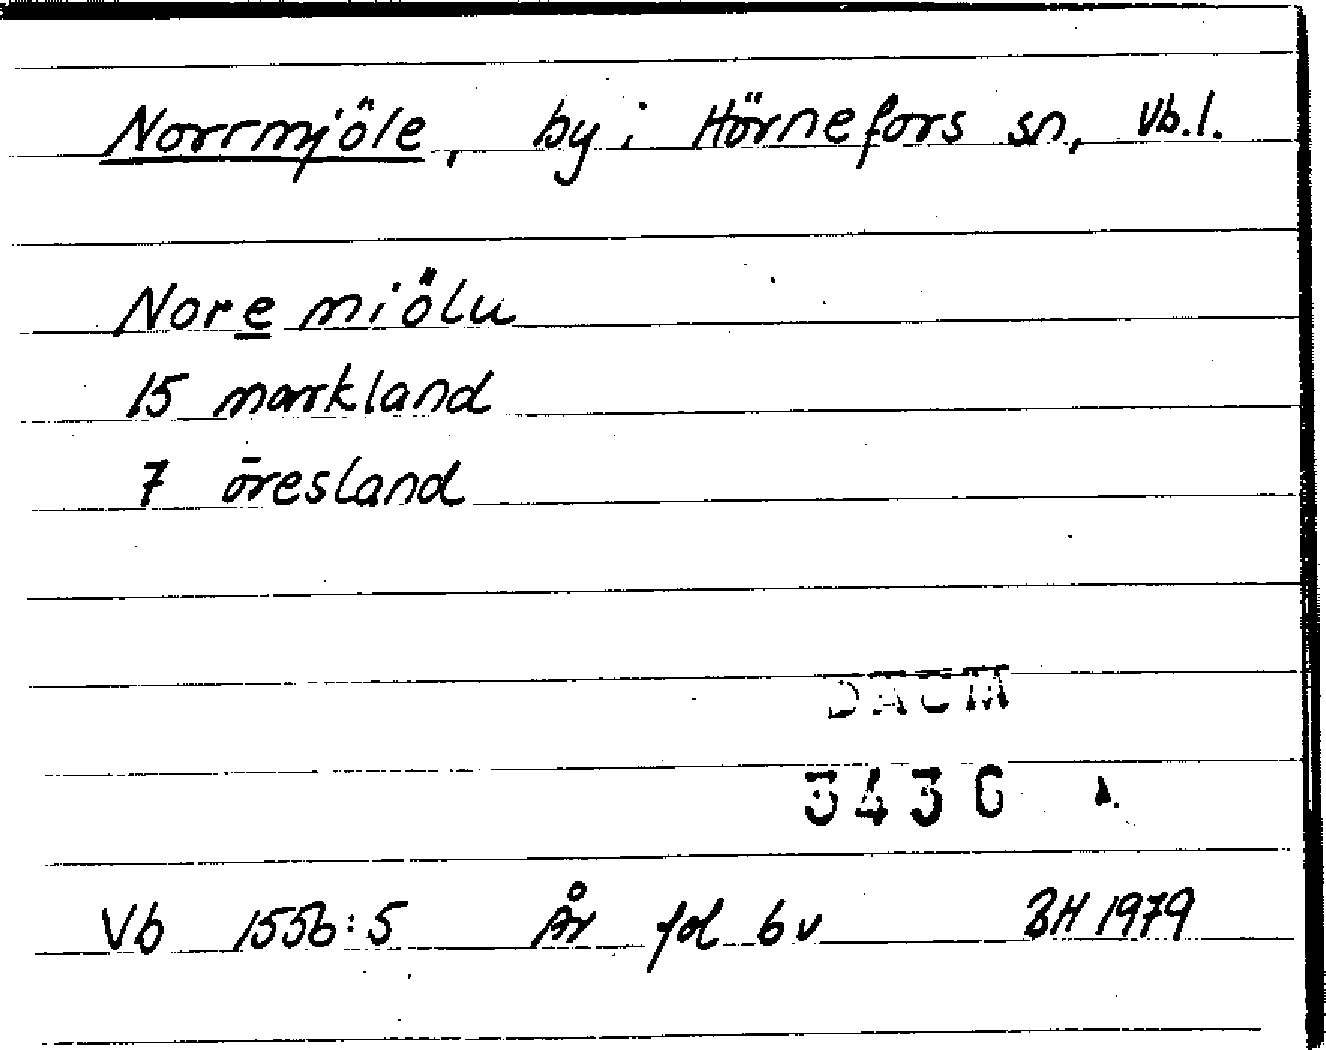 Norrmjöle, by i Hörnefors sn, Vb.l.
Nore miölu
15 markland
7 öresland
DAUM
3436 A.
Vb 1556:5 År fol 6 v BH 1979